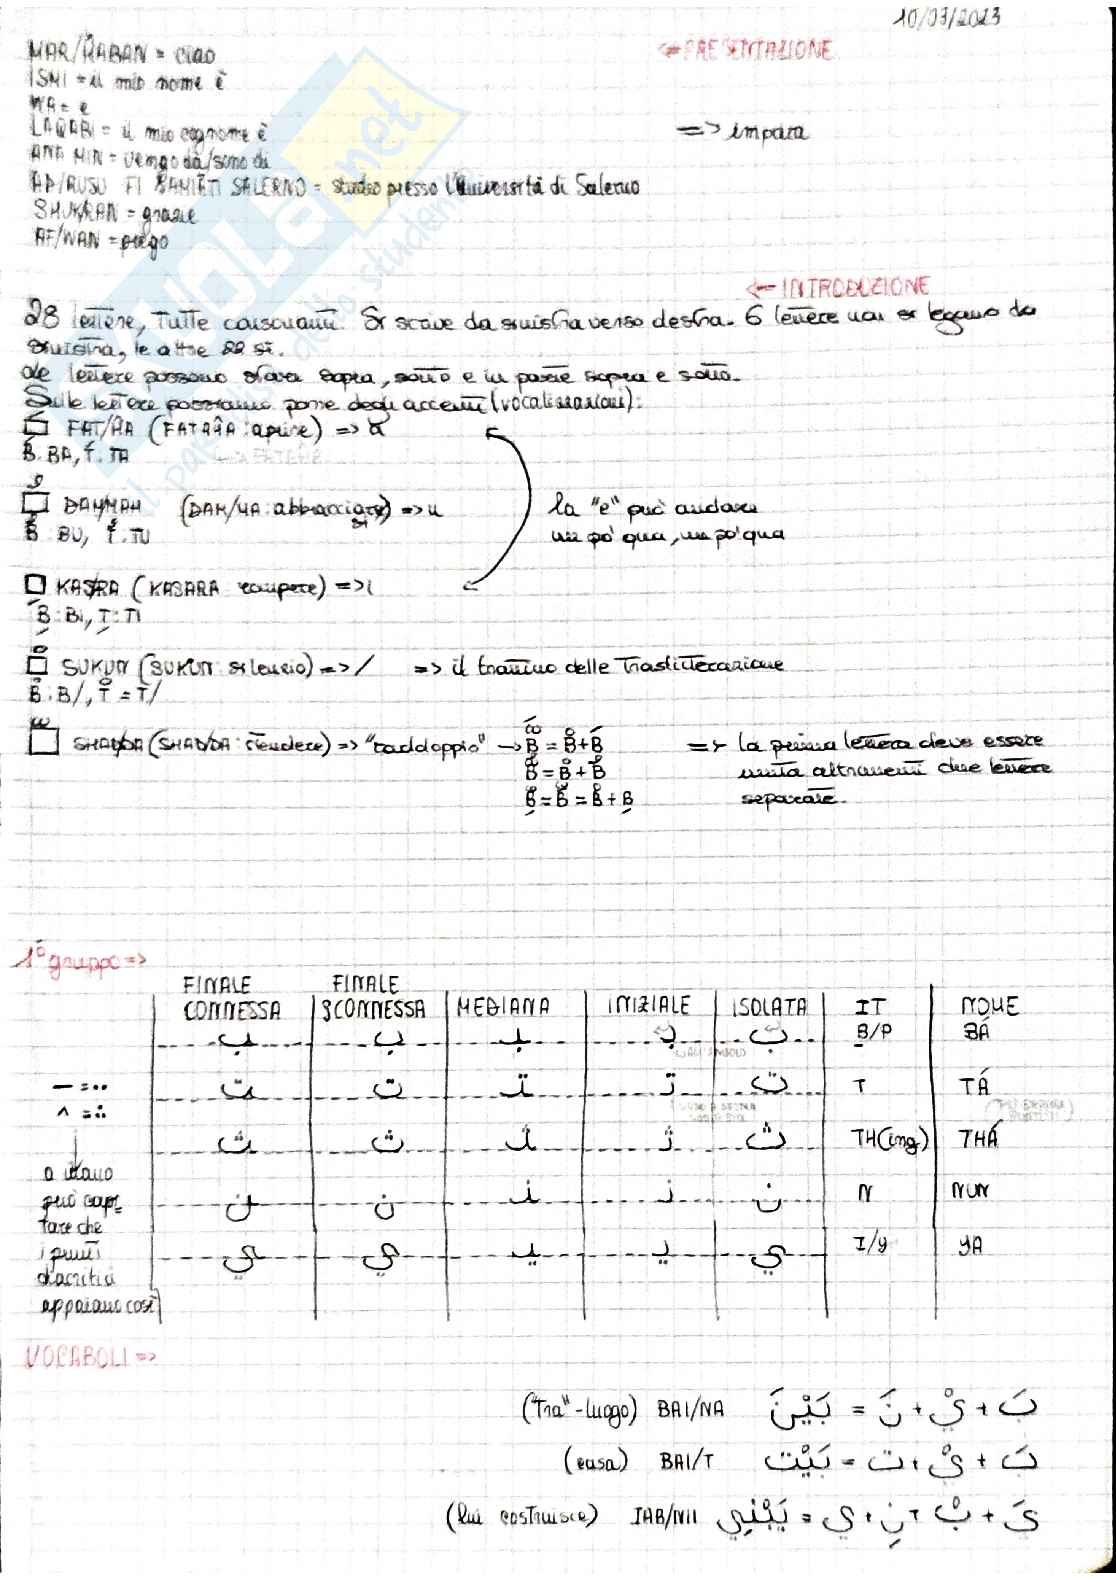 10/03/2023
<=PRESENTAZIONE
MAR/HABAN = ciao
ISMI = il mio nome è
WA = e
LAQABI = il mio cognome è
=> impara
ANA MIN = vengo da/sono di
AD/RUSU FI GAMIATI SALERNO = studio presso l'Università di Salerno
SHUKRAN = grazie
AF/WAN = prego
<= INTRODUZIONE
28 lettere, tutte consonanti. Si scrive da sinistra verso destra. 6 lettere non si legano da
sinistra, le altre 22 sì.
Le lettere possono stare sopra, sotto e in parte sopra e sotto.
Sulle lettere possiamo porre degli accenti (vocalizzazioni):
FAT/HA (FATAHA: aprire) => a
B: BA, T: TA
DAMMAH (DAM/MA: abbracciare) => u
B: BU, T: TU
la "e" può andare
un po' qua, un po' qua
KASRA (KASARA rompere) => i
B: BI, T: TI
SUKUN (SUKUN: silenzio) => / => il trattino delle traslitterazione
B: B/, T = T/
SHAD/DA (SHAD/DA: rendere) => "raddoppio" → B = B+B
B = B+B
B = B = B+B
=> la prima lettera deve essere
muta altrimenti due lettere
separate.
1° gruppo =>
FINALE CONNESSA | FINALE SCONNESSA | MEDIANA | INIZIALE | ISOLATA | IT | NOME
ب ب ب ب ب B/P BÁ
ت ت ت ت ت T TÁ
ث ث ث ث ث TH(ing) THÁ
ن ن ن ن ن N NUN
ي ي ي ي ي I/Y YA
— = ..
^ = ∴
a mano
può capi-
tare che
i punti
diacritici
appaiano così
VOCABOLI =>
("tra"-luogo) BAI/NA بَ + يْ + نَ = بَيْنَ
(casa) BAI/T بَ + يْ + ت = بَيْت
(lui costruisce) IAB/NII يَ + بْ + نِ + ي = يَبْنِي